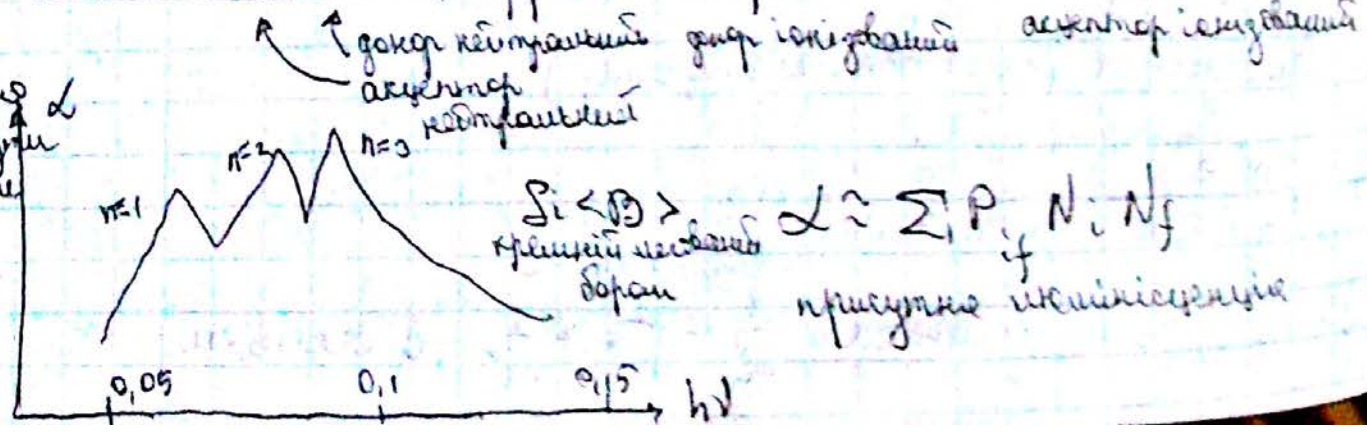 донор нейтральний донор іонізований акцептор іонізований
акцептор
нейтральний
α
n=1
n=2
n=3
Si <B>
кремній легований
бором
α ≈ Σ P_if N_i N_f
присутня люмінісценція
0,05 0,1 0,15 hν